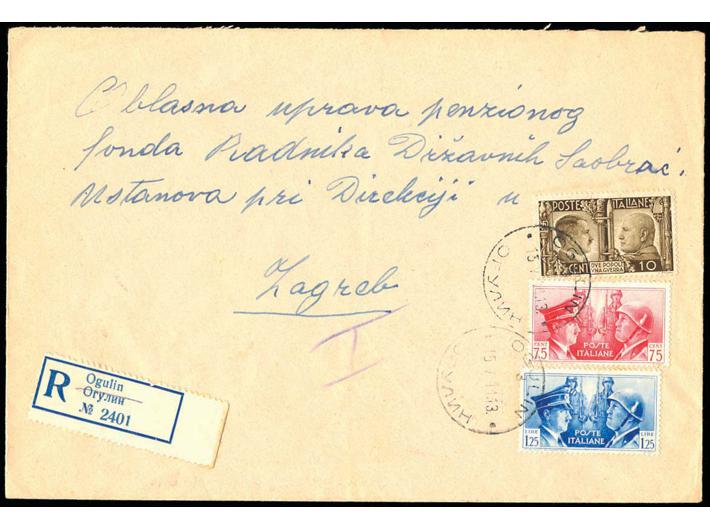 Oblasna uprava penzionog
fonda Radnika Državnih Saobrać.
Ustanova pri Direkciji u
Zagreb
POSTE ITALIANE
CENT 10
DUE POPOLI
UNA GUERRA
CENT 75 POSTE ITALIANE CENT 75
LIRE 1.25 POSTE ITALIANE LIRE 1.25
OGULIN
ОГУЛИН
OGULIN
ОГУЛИН
R Ogulin
Огулин
№ 2401